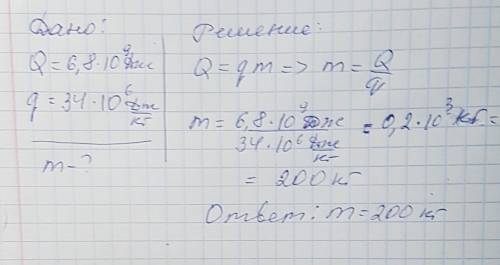 Дано:
Q = 6,8·10⁹ Дж
q = 34·10⁶ Дж/кг
m - ?
Решение:
Q = qm => m = Q/q
m = 6,8·10⁹ Дж / 34·10⁶ Дж/кг = 0,2·10³ кг =
= 200 кг
Ответ: m = 200 кг